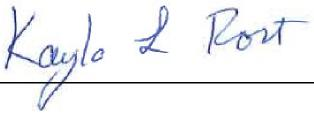 Kayla L Rost